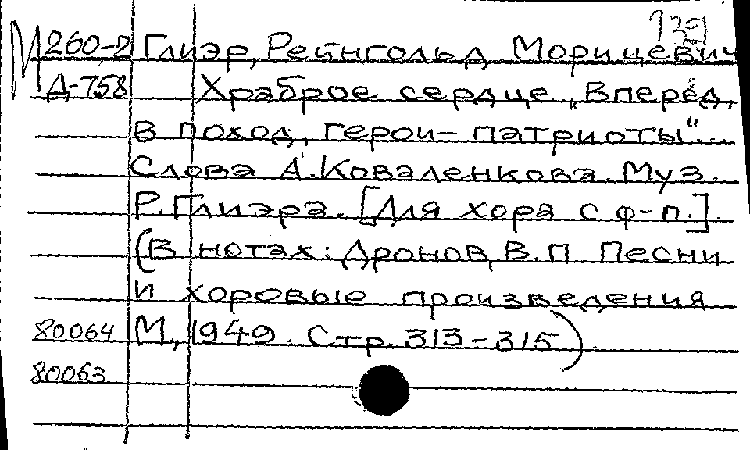 М 260-2 Глиэр, Рейнгольд Морицевич
Д-758 Храброе сердце „Вперёд,
в поход, герои-патриоты"...
Слова А. Коваленкова. Муз.
Р. Глиэра. [Для хора с ф-п.].
(В нотах: Дронов, В.П. Песни
и хоровые произведения
80064 М, 1949. Стр. 313-315)
80063